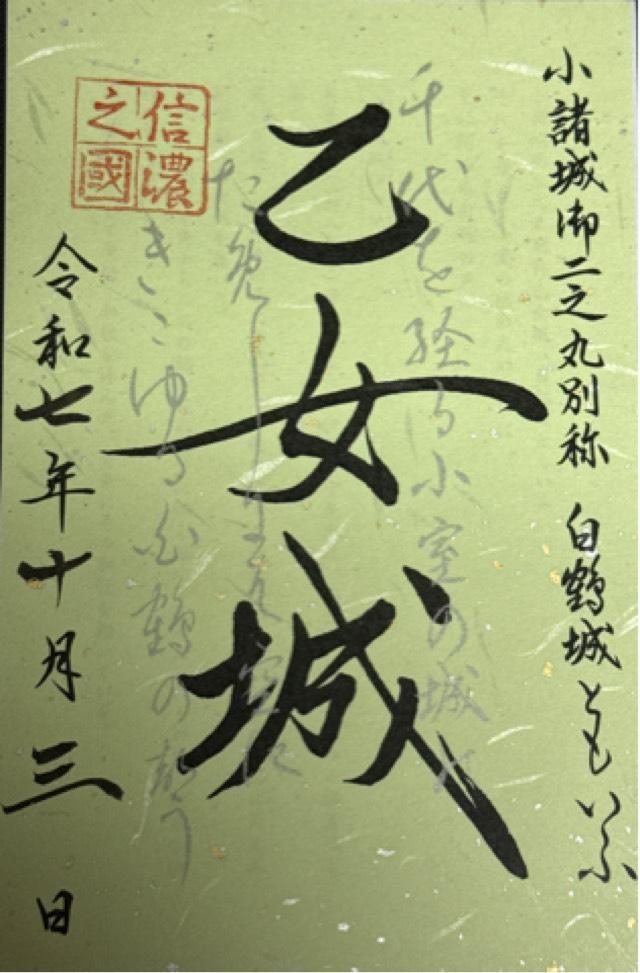 小諸城御二之丸別称 白鶴城ともいふ
千代を経る小室の城
乙女城
きこゆる白鶴の
信濃
之國
令和七年十月三日